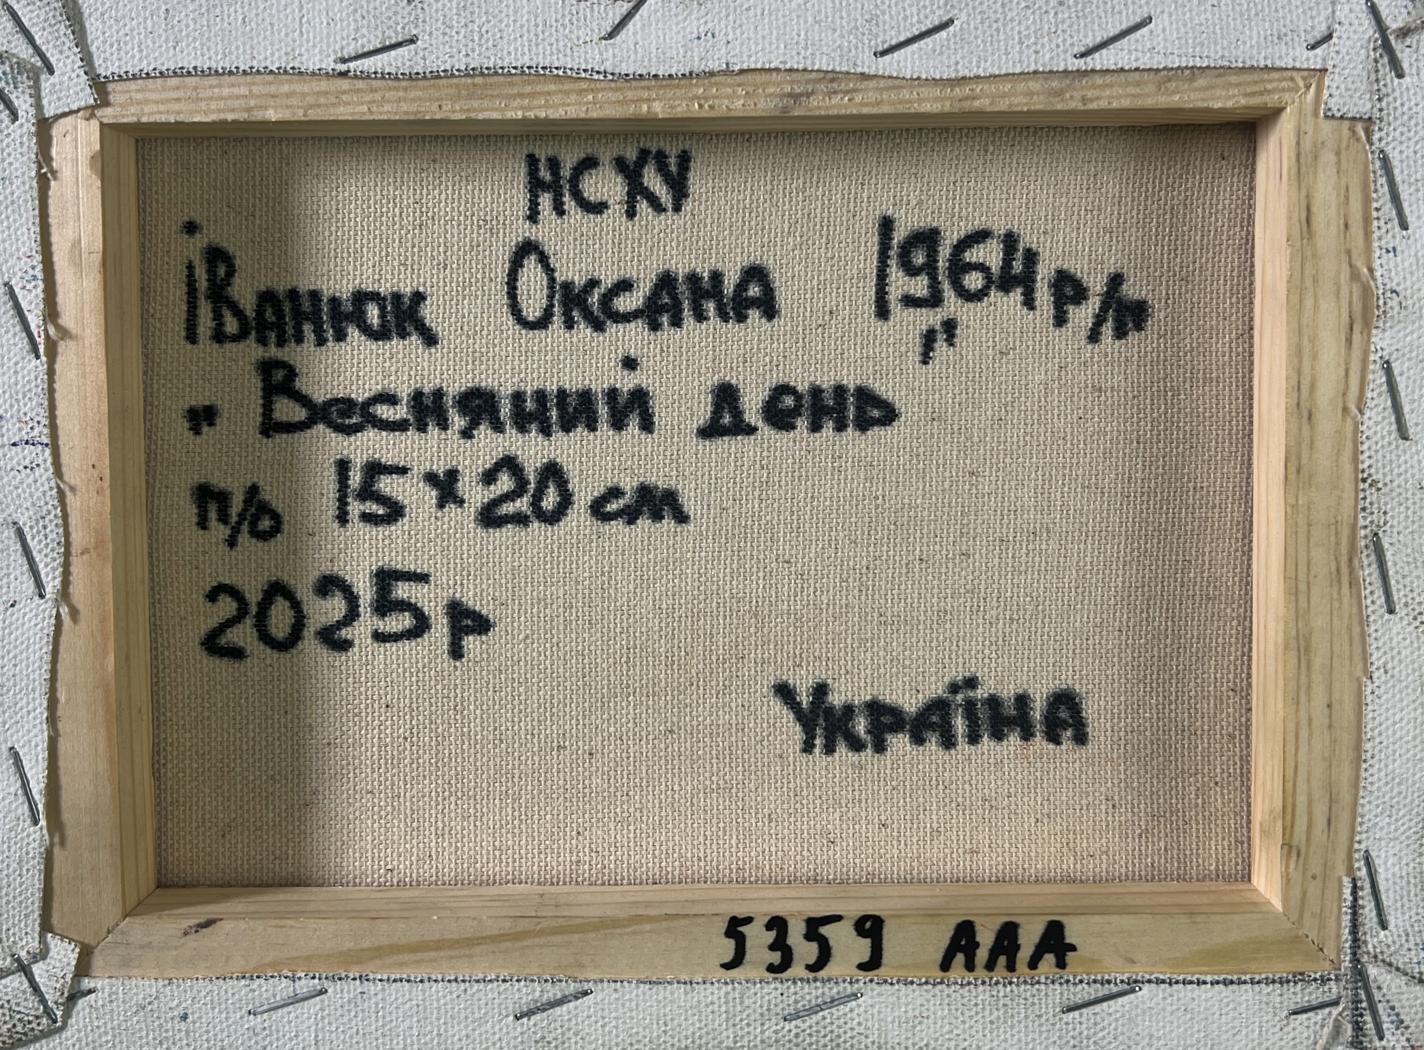 НСХУ
Іванюк Оксана 1964 р/н
„Весняний день"
п/о 15×20 см
2025р
Україна
5359 ААА